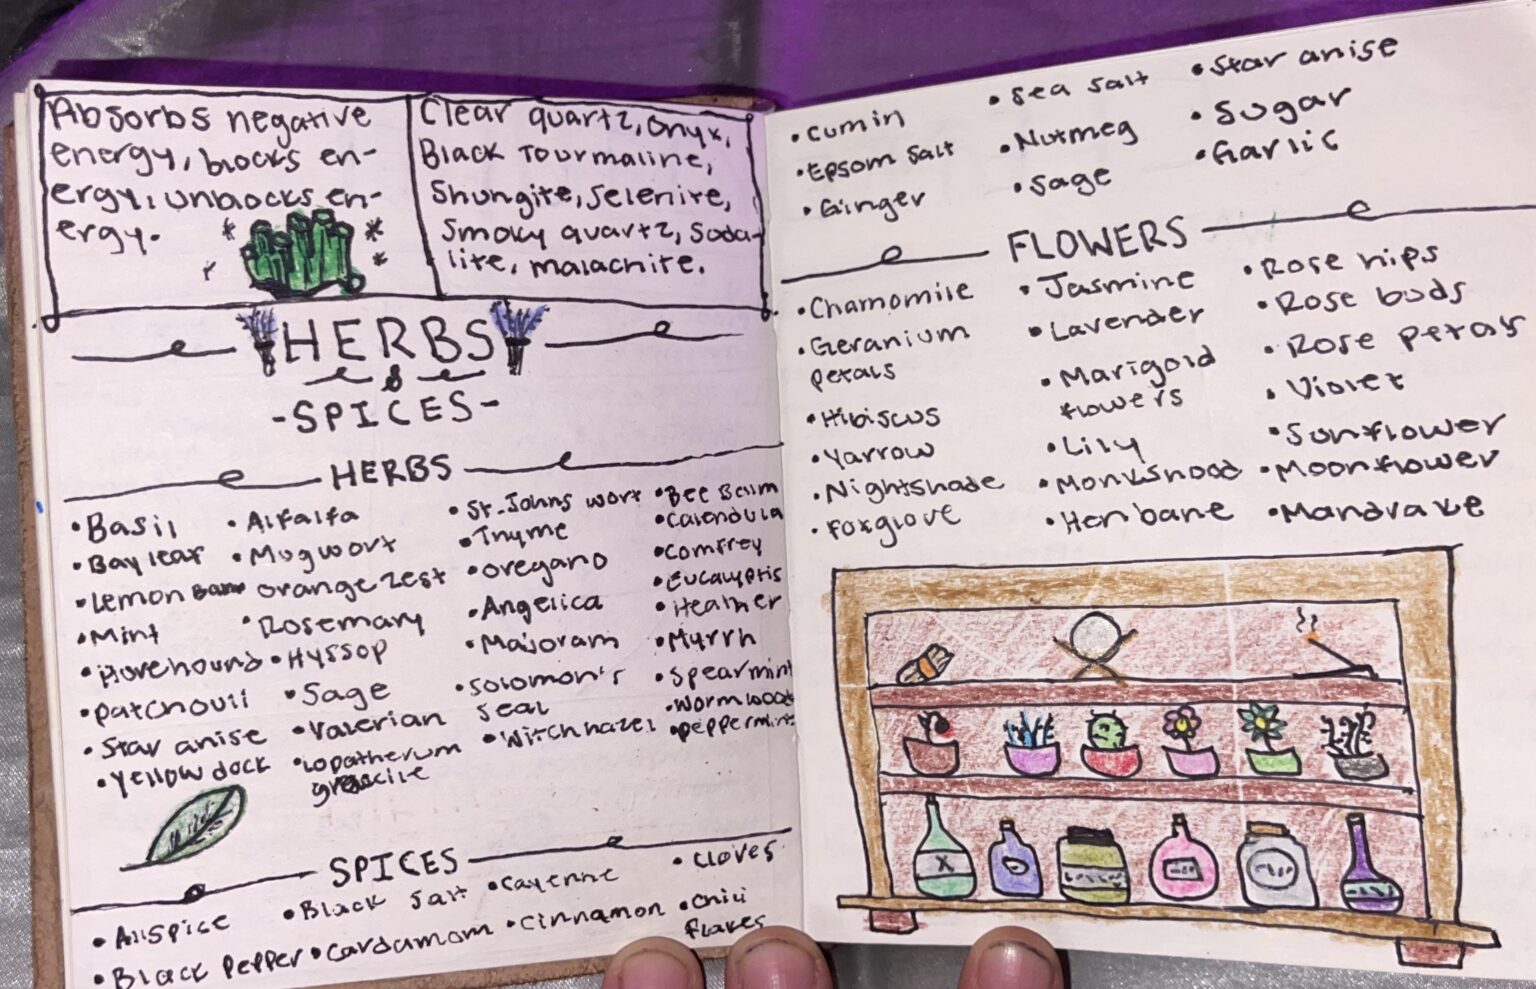 Absorbs negative
energy, blocks en-
ergy, unblocks en-
ergy.
Clear quartz, onyx,
Black Tourmaline,
Shungite, Selenite,
Smoky quartz, Soda-
lite, malachite.
HERBS
&
-SPICES-
HERBS
• Basil
• Bay leaf
• Lemon Balm
• Mint
• Horehound
• Patchouli
• Star anise
• Yellow dock
• Alfalfa
• Mugwort
orange zest
• Rosemary
• Hyssop
• Sage
• Valerian
• Lopatherum
gracile
• St. Johns wort
• Thyme
• oregano
• Angelica
• Majoram
• Solomon's
seal
• Witch hazel
• Bee Balm
• Calendula
• Comfrey
• Eucalyptis
• Heather
• Myrrh
• Spearmint
• Wormwood
• Peppermint
SPICES
• Allspice
• Black Pepper
• Black Salt
• Cardamom
• Cayenne
• Cinnamon
• Cloves
• Chili
flakes
• Cumin
• Epsom Salt
• Ginger
• Sea Salt
• Nutmeg
• Sage
• Star anise
• Sugar
• Garlic
FLOWERS
• Chamomile
• Geranium
petals
• Hibiscus
• Yarrow
• Nightshade
• Foxglove
• Jasmine
• Lavender
• Marigold
flowers
• Lily
• Monkshood
• Henbane
• Rose hips
• Rose buds
• Rose petals
• Violet
• Sunflower
• Moonflower
• Mandrake
X